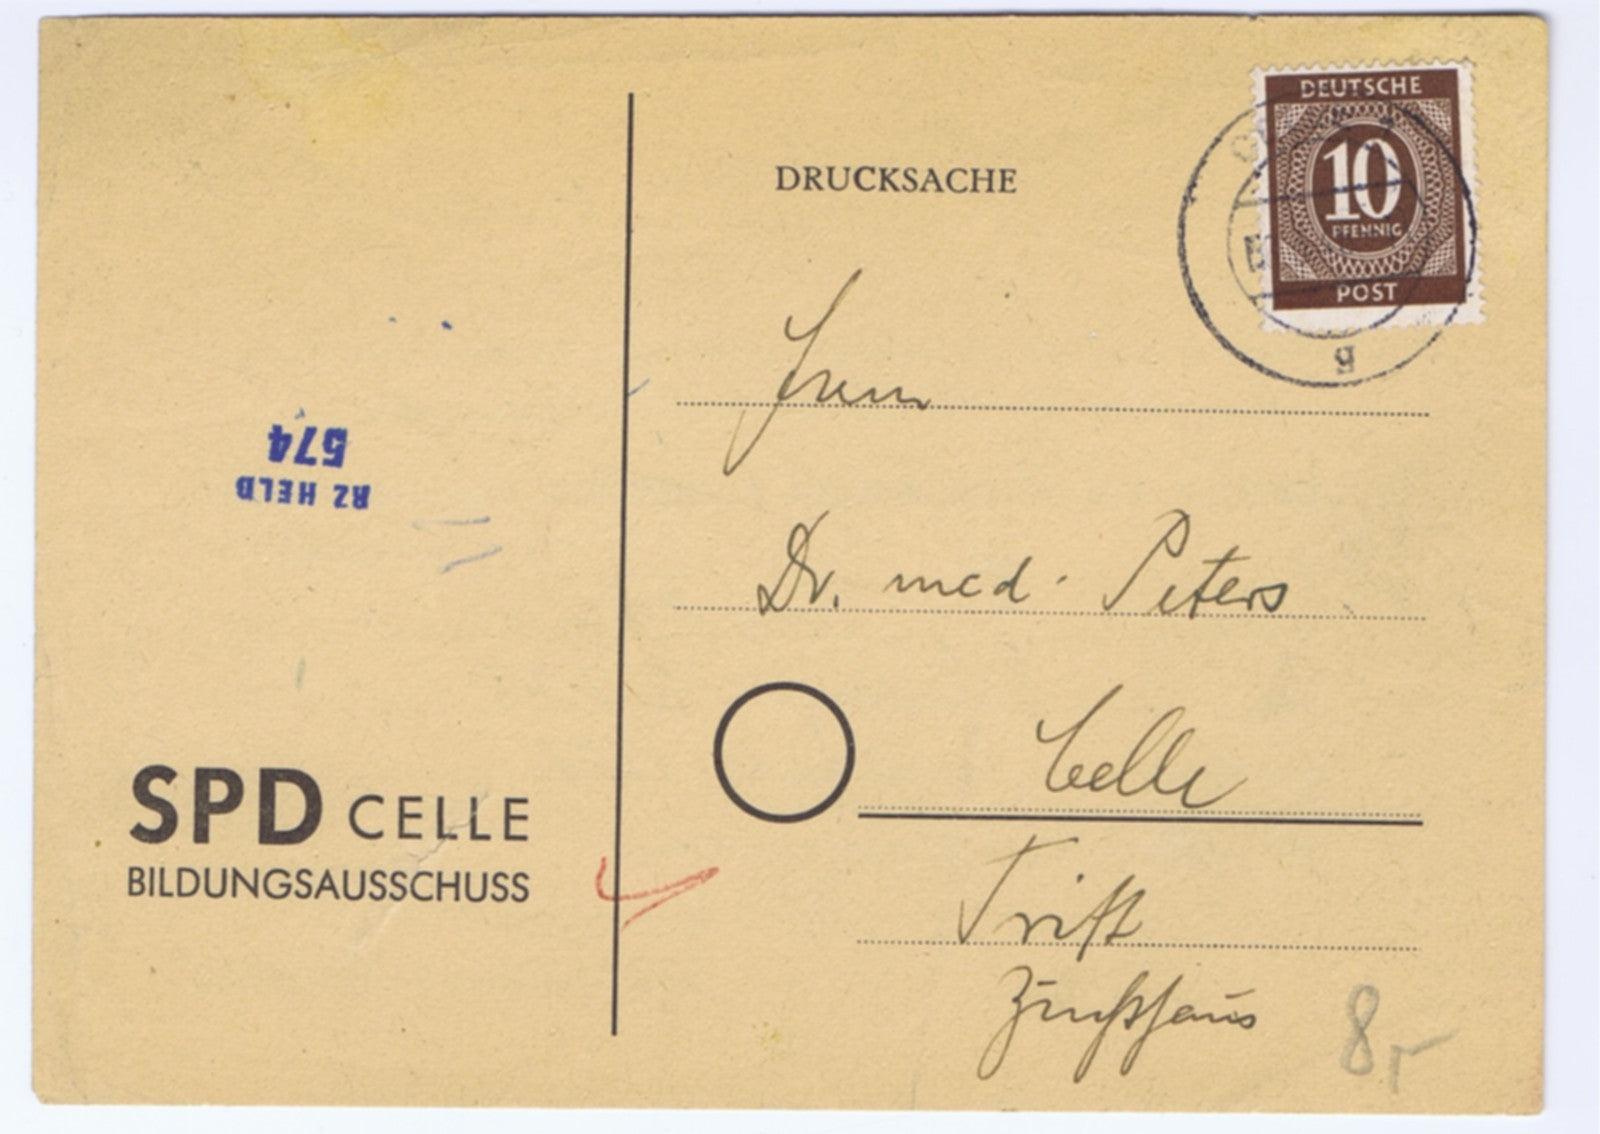 DEUTSCHE
10
PFENNIG
POST
g
DRUCKSACHE
Herrn
Dr. med. Peters
Celle
Trift
Zuchthaus
574
RZ HELD
SPD CELLE
BILDUNGSAUSSCHUSS
8,-